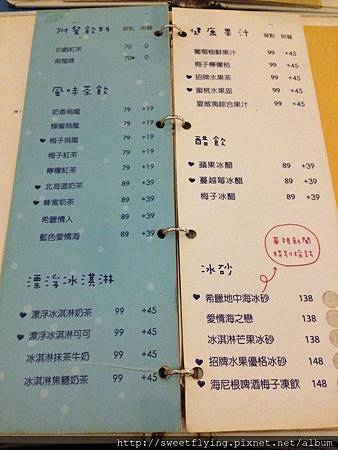 附餐飲料 單點 附餐
伯爵紅茶 70 0
烏龍綠 70 0
風味茶飲
奶香烏龍 79 +19
蜂蜜烏龍 79 +19
♥ 梅子烏龍 79 +19
梅子紅茶 79 +19
檸檬紅茶 79 +19
♥ 北海道奶茶 89 +39
♥ 蜂蜜奶茶 89 +39
希臘情人 89 +39
藍色愛情海 89 +39
漂浮冰淇淋
♥ 漂浮冰淇淋奶茶 99 +45
♥ 漂浮冰淇淋可可 99 +45
冰淇淋抹茶牛奶 99 +45
冰淇淋焦糖奶茶 99 +45
健康果汁 單點 附餐
葡萄柚鮮果汁 99 +45
梅子檸檬桔 99 +45
♥ 招牌水果茶 99 +45
♥ 蜜桃水果茶 99 +45
夏威夷綜合果汁 99 +45
醋飲
♥ 蘋果冰醋 89 +39
♥ 蔓越莓冰醋 89 +39
梅子冰醋 89 +39
華視新聞
特別採訪
冰砂
♥ 希臘地中海冰砂 138
愛情海之戀 138
冰淇淋芒果冰砂 138
♥ 招牌水果優格冰砂 148
♥ 海尼根啤酒梅子凍飲 148
http://sweetflying.pixnet.net/album